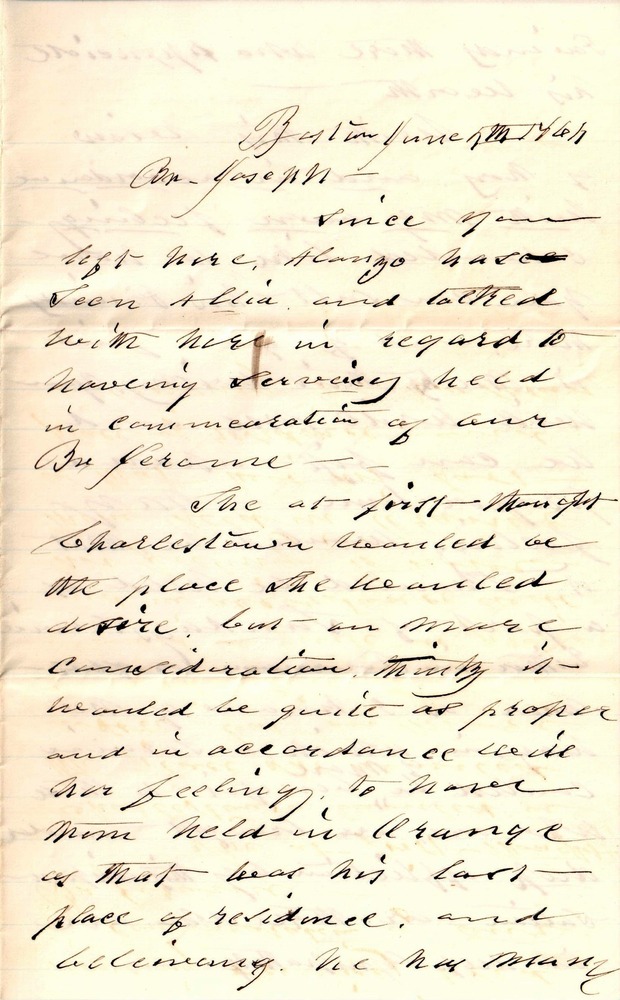 Boston June 5th 1864
Br. Joseph —
Since you
left here, Alonzo has
seen Allia and talked
with here in regard to
haveing services held
in commeoration of our
Br Jerome —
She at first thought
Charlestown would be
the place she would
desire, but on more
consideration, thinks it
would be quite as proper
and in accordance with
her feelings, to have
them held in Orange
as that was his last
place of residence, and
beleiveing he has many